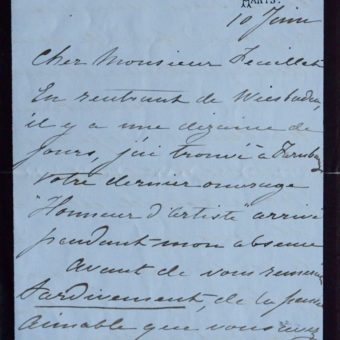 HANTS.
10 Juin
Cher Monsieur Feuillet
En rentrant de Wiesbaden,
il y a une dizaine de
jours, j'ai trouvé à Farnboro
votre dernier ouvrage
"Honneur d'artiste" arrivé
pendant mon absence
avant de vous remercier
tardivement, de la pensée
aimable que vous avez